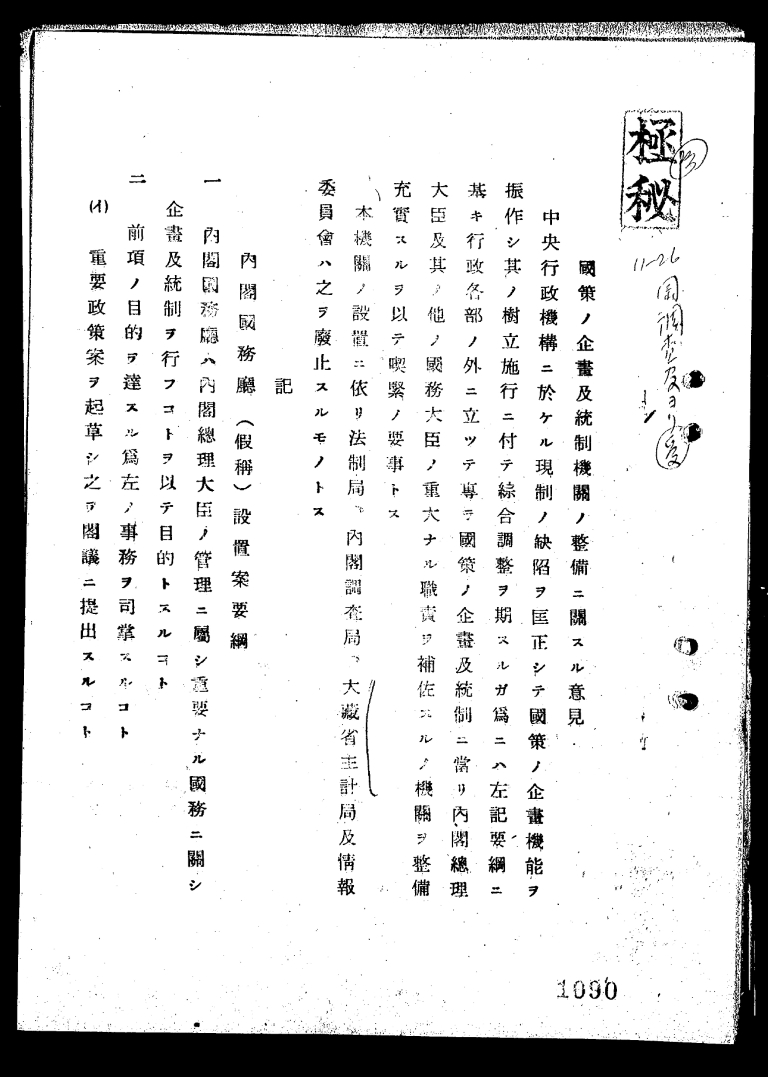 極秘
11-26
國策ノ企畫及統制機關ノ整備ニ關スル意見
中央行政機構ニ於ケル現制ノ缺陷ヲ匡正シテ國策ノ企畫機能ヲ
振作シ其ノ樹立施行ニ付テ綜合調整ヲ期スルガ爲ニハ左記要綱ニ
基キ行政各部ノ外ニ立ツテ專ラ國策ノ企畫及統制ニ當リ內閣總理
大臣及其ノ他ノ國務大臣ノ重大ナル職責ヲ補佐スルノ機關ヲ整備
充實スルヲ以テ喫緊ノ要事トス
本機關ノ設置ニ依リ法制局、內閣調査局、大藏省主計局及情報
委員會ハ之ヲ廢止スルモノトス
記
內閣國務廳（假稱）設置案要綱
一 內閣國務廳ハ內閣總理大臣ノ管理ニ屬シ重要ナル國務ニ關シ
企畫及統制ヲ行フコトヲ以テ目的トスルコト
二 前項ノ目的ヲ達スル爲左ノ事務ヲ司掌スルコト
(イ) 重要政策案ヲ起草シ之ヲ閣議ニ提出スルコト
1090